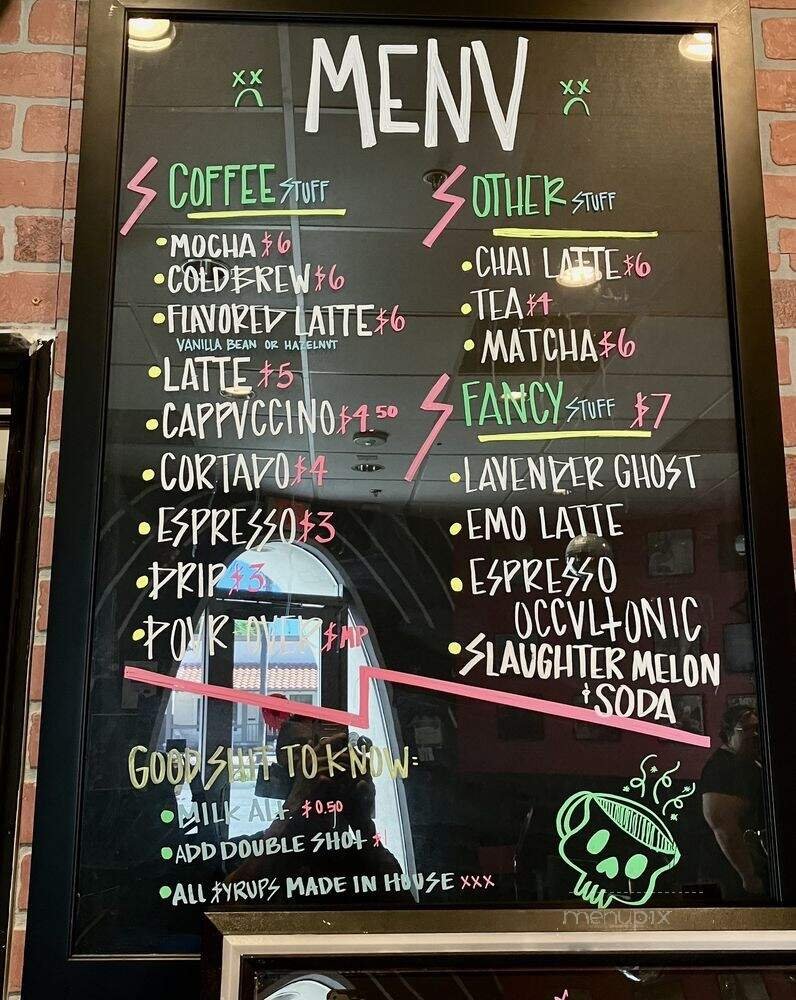 MENV
COFFEE STUFF
• MOCHA $6
• COLD BREW $6
• FLAVORED LATTE $6
VANILLA BEAN OR HAZELNVT
• LATTE $5
• CAPPVCCINO $4.50
• CORTADO $4
• ESPRESSO $3
• DRIP $3
• POVR OVER $MP
OTHER STUFF
• CHAI LATTE $6
• TEA $4
• MATCHA $6
FANCY STUFF $7
• LAVENDER GHOST
• EMO LATTE
• ESPRESSO
OCCVLTONIC
• SLAUGHTER MELON
+ SODA
GOOD SHIT TO KNOW:
• MILK ALT. $0.50
• ADD DOUBLE SHOT $1
• ALL SYRUPS MADE IN HOUSE XXX
menupix